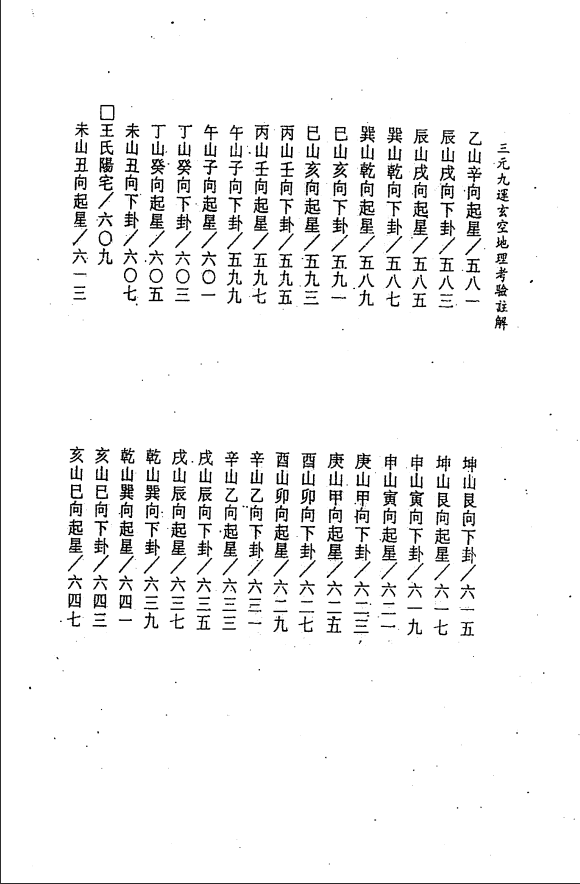 三元九運玄空地理考驗註解
乙山辛向起星／五八一
辰山戌向下卦／五八三
辰山戌向起星／五八五
巽山乾向下卦／五八七
巽山乾向起星／五八九
巳山亥向下卦／五九一
巳山亥向起星／五九三
丙山壬向下卦／五九五
丙山壬向起星／五九七
午山子向下卦／五九九
午山子向起星／六〇一
丁山癸向下卦／六〇三
丁山癸向起星／六〇五
未山丑向下卦／六〇七
□王氏陽宅／六〇九
未山丑向起星／六一三
坤山艮向下卦／六一五
坤山艮向起星／六一七
申山寅向下卦／六一九
申山寅向起星／六二一
庚山甲向下卦／六二三
庚山甲向起星／六二五
酉山卯向下卦／六二七
酉山卯向起星／六二九
辛山乙向下卦／六三一
辛山乙向起星／六三三
戌山辰向下卦／六三五
戌山辰向起星／六三七
乾山巽向下卦／六三九
乾山巽向起星／六四一
亥山巳向下卦／六四三
亥山巳向起星／六四七